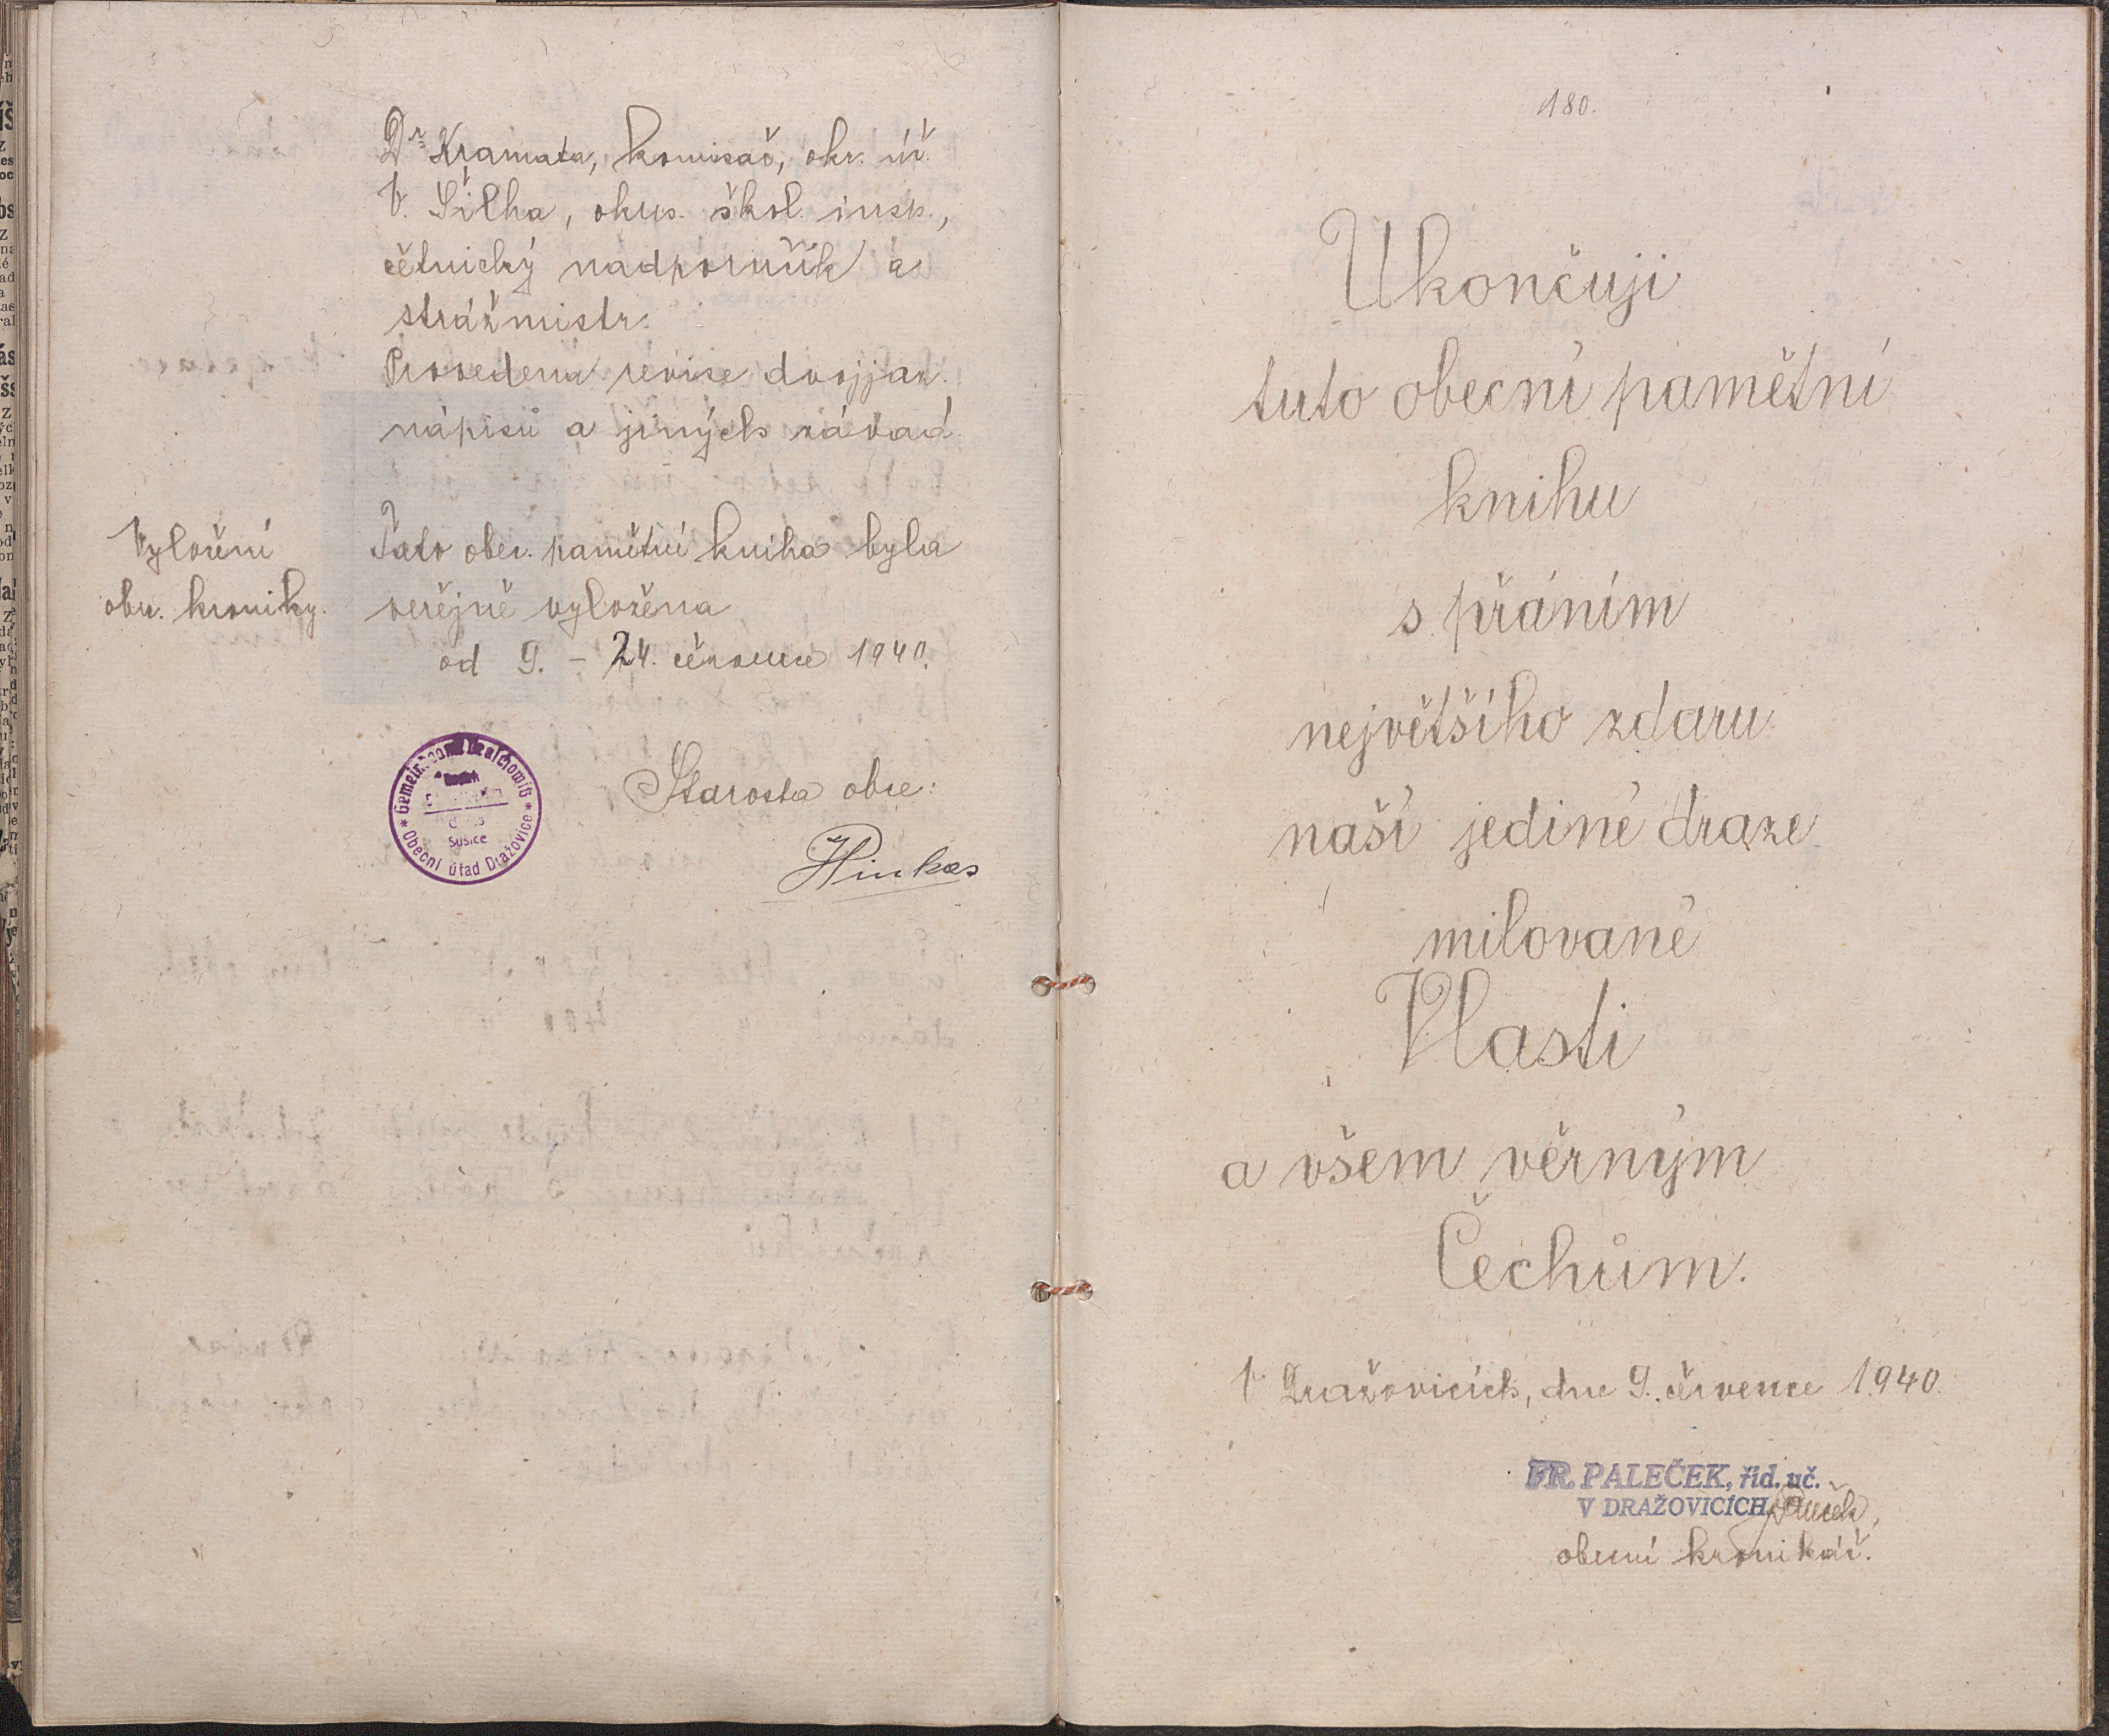 Dr Kramata, komisař, okr. úř.
V. Šilha, okres. škol. insp.,
četnický nadporučík a
strážmistr.
Provedena revise dvojjaz.
nápisů a jiných závad.
Vyložení
obec. kroniky.
Tato obec. pamětní kniha byla
veřejně vyložena
od 9. – 24. července 1940.
Obecní úřad Dražovice
Sušice
Starosta obce:
180.
Ukončuji
tuto obecní pamětní
knihu
s přáním
největšího zdaru
naší jediné draze
milované
Vlasti
a všem věrným
Čechům.
V Dražovicích, dne 9. července 1940.
FR. PALEČEK, říd. uč.
V DRAŽOVICÍCH.
obecní kronikář.